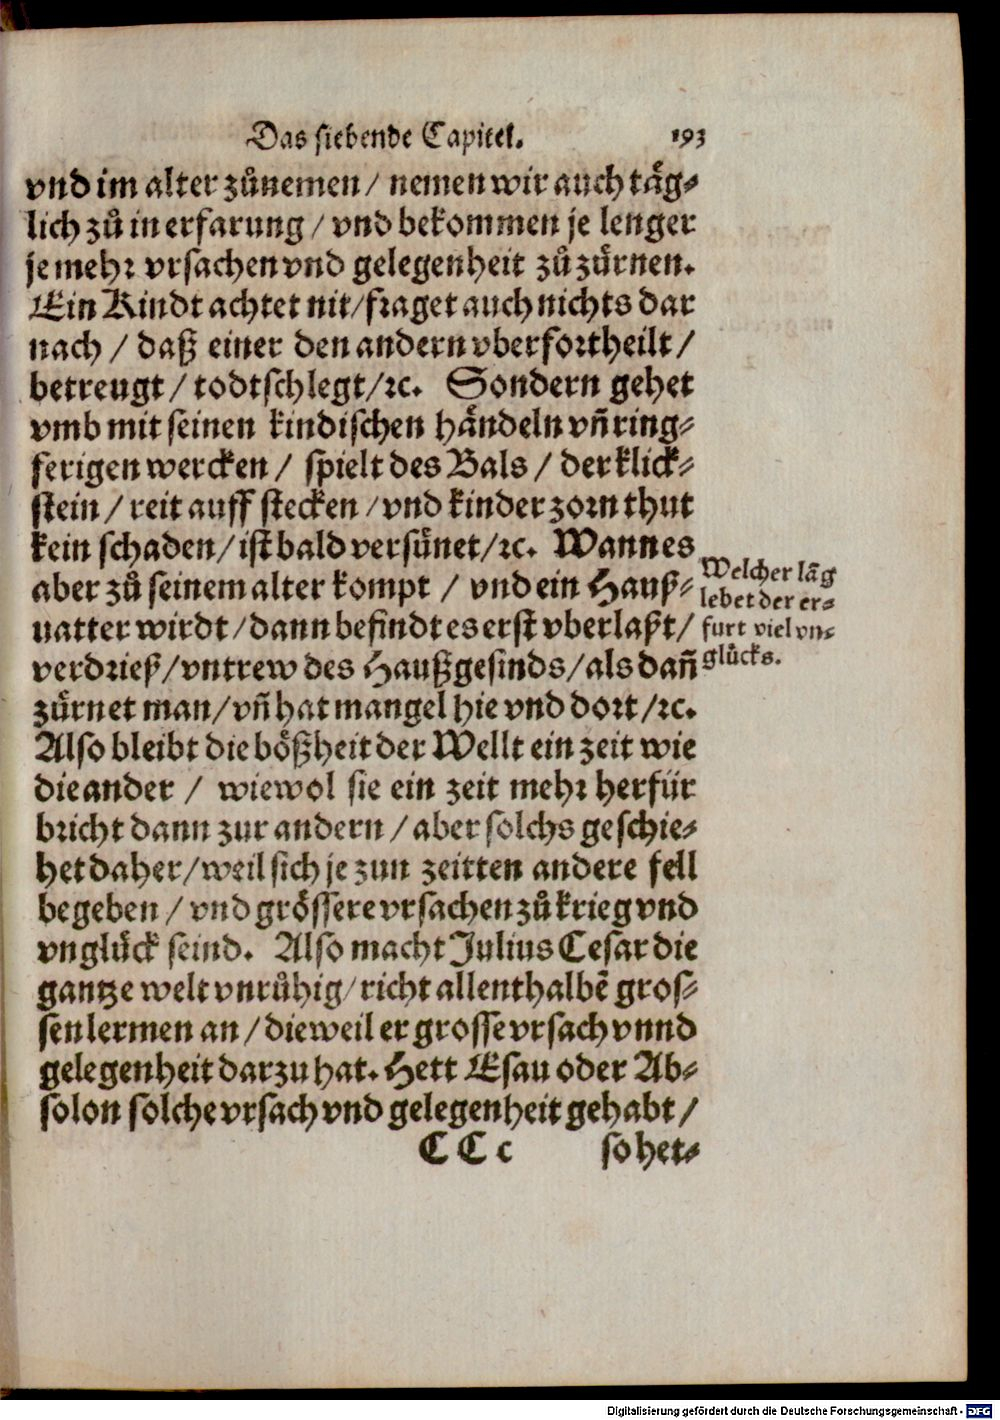 Das siebende Capitel. 193
vnd im alter zůnemen / nemen wir auch täg⸗
lich zů in erfarung / vnd bekommen je lenger
je mehr vrsachen vnd gelegenheit zů zürnen.
Ein Kindt achtet nit/fraget auch nichts dar
nach / daß einer den andern vberfortheilt /
betreugt / todtschlegt/ꝛc. Sondern gehet
vmb mit seinen kindischen händeln vñ ring⸗
ferigen wercken / spielt des Bals / der klick⸗
stein / reit auff stecken /vnd kinder zorn thut
kein schaden/ist bald versünet/ꝛc. Wann es
aber zů seinem alter kompt / vnd ein Hauß⸗
uatter wirdt/dann befindt es erst vberlaßt/
verdrieß/vntrew des Haußgesinds/als dañ
zürnet man/vñ hat mangel hie vnd dort /ꝛc.
Also bleibt die bößheit der Wellt ein zeit wie
die ander / wiewol sie ein zeit mehr herfür
bricht dann zur andern /aber solchs geschie⸗
het daher/weil sich je zun zeitten andere fell
begeben / vnd grössere vrsachen zů krieg vnd
vnglück seind. Also macht Julius Cesar die
gantze welt vnrůhig/richt allenthalbẽ gros⸗
sen lermen an /dieweil er grosse vrsach vnnd
gelegenheit darzu hat. Hett Esau oder Ab⸗
solon solche vrsach vnd gelegenheit gehabt /
C C c so het⸗
Welcher lãg
lebet der er⸗
furt viel vn⸗
glücks.
Digitalisierung gefördert durch die Deutsche Forschungsgemeinschaft - DFG